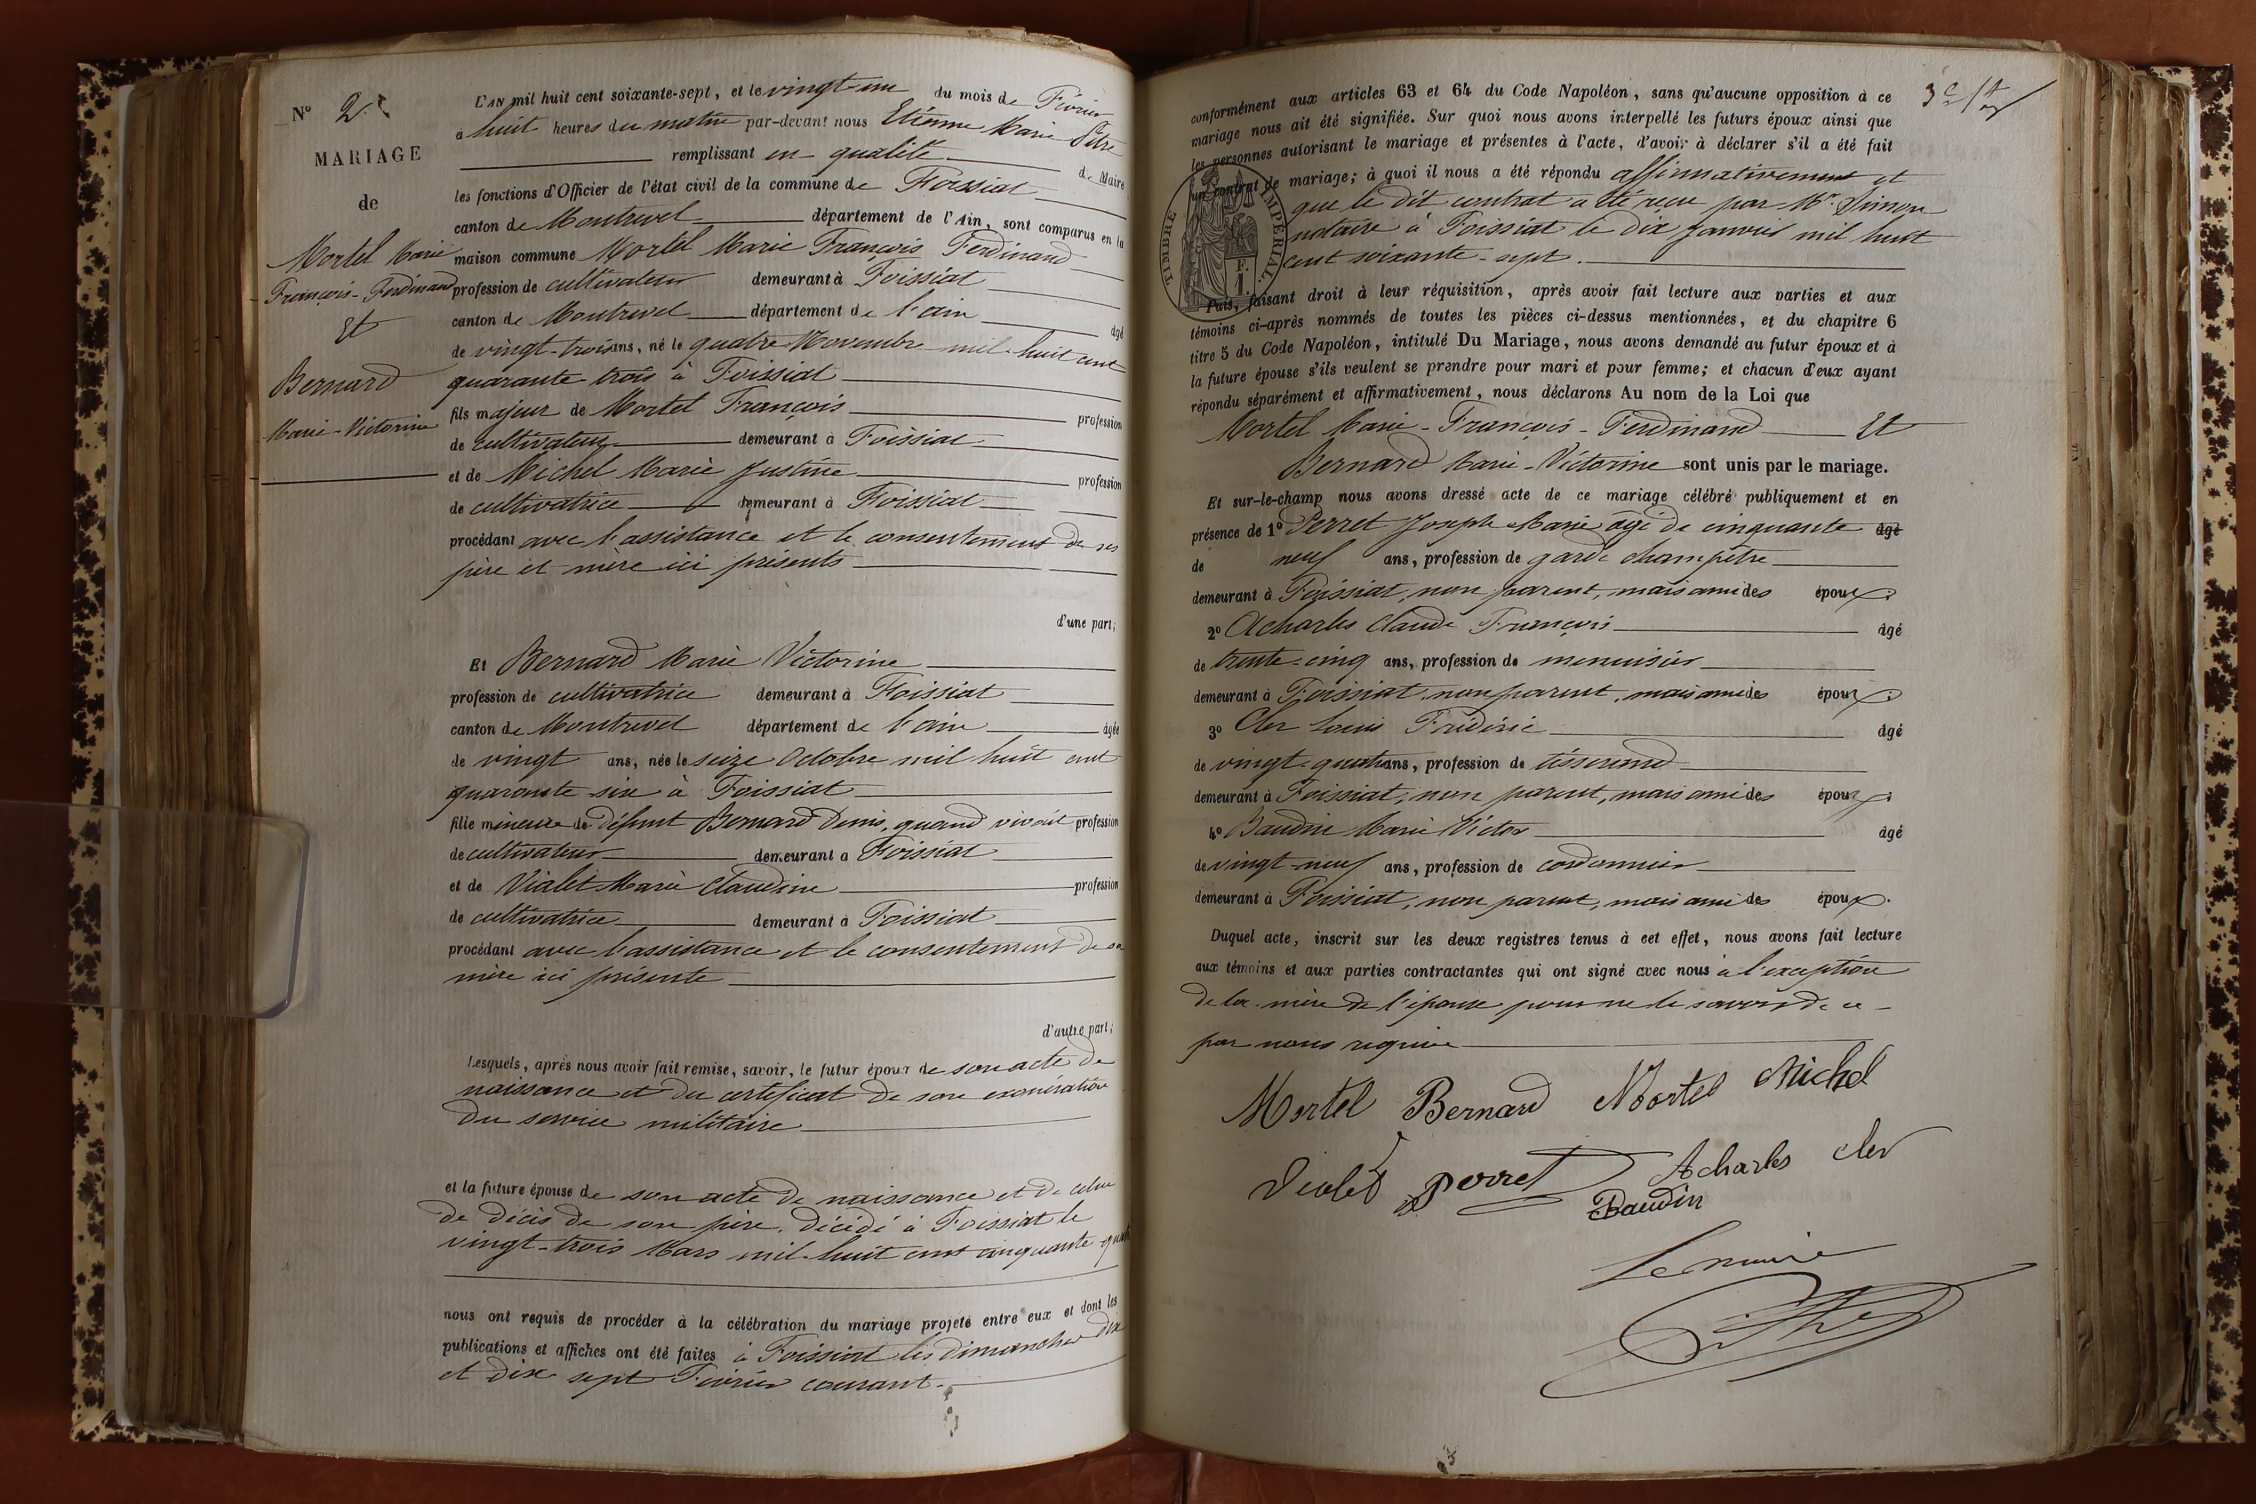 N° 2.
MARIAGE
de
Mortel Marie
François-Ferdinand
Et
Bernard
Marie-Victorine
L'AN mil huit cent soixante-sept, et le vingt-un du mois de Février
à huit heures du matin par-devant nous Etienne Marie Pitre
remplissant en qualité de Maire
les fonctions d'Officier de l'état civil de la commune de Foissiat
canton de Montrevel département de l'Ain, sont comparus en la
maison commune Mortel Marie François Ferdinand
profession de cultivateur demeurant à Foissiat
canton de Montrevel département de l'ain âgé
de vingt-trois ans, né le quatre Novembre mil-huit cent
quarante trois à Foissiat
fils majeur de Mortel François profession
de cultivateur demeurant à Foissiat
et de Michel Marie Justine profession
de cultivatrice demeurant à Foissiat
procédant avec l'assistance et le consentement de ses
père et mère ici présents
d'une part;
Et Bernard Marie Victorine
profession de cultivatrice demeurant à Foissiat
canton de Montrevel département de l'ain âgée
de vingt ans, née le seize Octobre mil huit cent
quarante-six à Foissiat
fille mineure de défunt Bernard Denis, quand vivait profession
de cultivateur demeurant à Foissiat
et de Vialet Marie Claudine profession
de cultivatrice demeurant à Foissiat
procédant avec l'assistance et le consentement de sa
mère ici présente
d'autre part;
Lesquels, après nous avoir fait remise, savoir, le futur époux de son acte de
naissance et du certificat de son exonération
du service militaire
et la future épouse de son acte de naissance et de celui
de décès de son père, décédé à Foissiat le
vingt-trois Mars mil-huit cent cinquante-quatre
nous ont requis de procéder à la célébration du mariage projeté entre eux et dont les
publications et affiches ont été faites à Foissiat les dimanches dix
et dix sept Février courant.
conformément aux articles 63 et 64 du Code Napoléon, sans qu'aucune opposition à ce
mariage nous ait été signifiée. Sur quoi nous avons interpellé les futurs époux ainsi que
les personnes autorisant le mariage et présentes à l'acte, d'avoir à déclarer s'il a été fait
un contrat de mariage; à quoi il nous a été répondu affirmativement et
que le dit contrat a été reçu par Me Simon
notaire à Foissiat le dix Janvier mil huit
cent soixante-sept.
TIMBRE IMPÉRIAL
F.
1.
Puis, faisant droit à leur réquisition, après avoir fait lecture aux parties et aux
témoins ci-après nommés de toutes les pièces ci-dessus mentionnées, et du chapitre 6
titre 5 du Code Napoléon, intitulé Du Mariage, nous avons demandé au futur époux et à
la future épouse s'ils veulent se prendre pour mari et pour femme; et chacun d'eux ayant
répondu séparément et affirmativement, nous déclarons Au nom de la Loi que
Mortel Marie-François-Ferdinand Et
Bernard Marie-Victorine sont unis par le mariage.
Et sur-le-champ nous avons dressé acte de ce mariage célébré publiquement et en
présence de 1° Perret Joseph Marie âgé de cinquante âgé
de neuf ans, profession de garde champêtre
demeurant à Foissiat, non parent, mais ami des époux.
2° Acharles Claude François âgé
de trente-cinq ans, profession de menuisier
demeurant à Foissiat, non parent, mais ami des époux.
3° Cler Louis Frédéric âgé
de vingt-quatre ans, profession de tisserand
demeurant à Foissiat, non parent, mais ami des époux.
4° Baudin Marie Victor âgé
de vingt-neuf ans, profession de cordonnier
demeurant à Foissiat, non parent, mais ami des époux.
Duquel acte, inscrit sur les deux registres tenus à cet effet, nous avons fait lecture
aux témoins et aux parties contractantes qui ont signé avec nous à l'exception
de la mère de l'épouse pour ne le savoir de ce
par nous requise
Mortel Bernard Mortel Michel
Violet Perret Acharles cler
Baudin
Le maire
Pitre